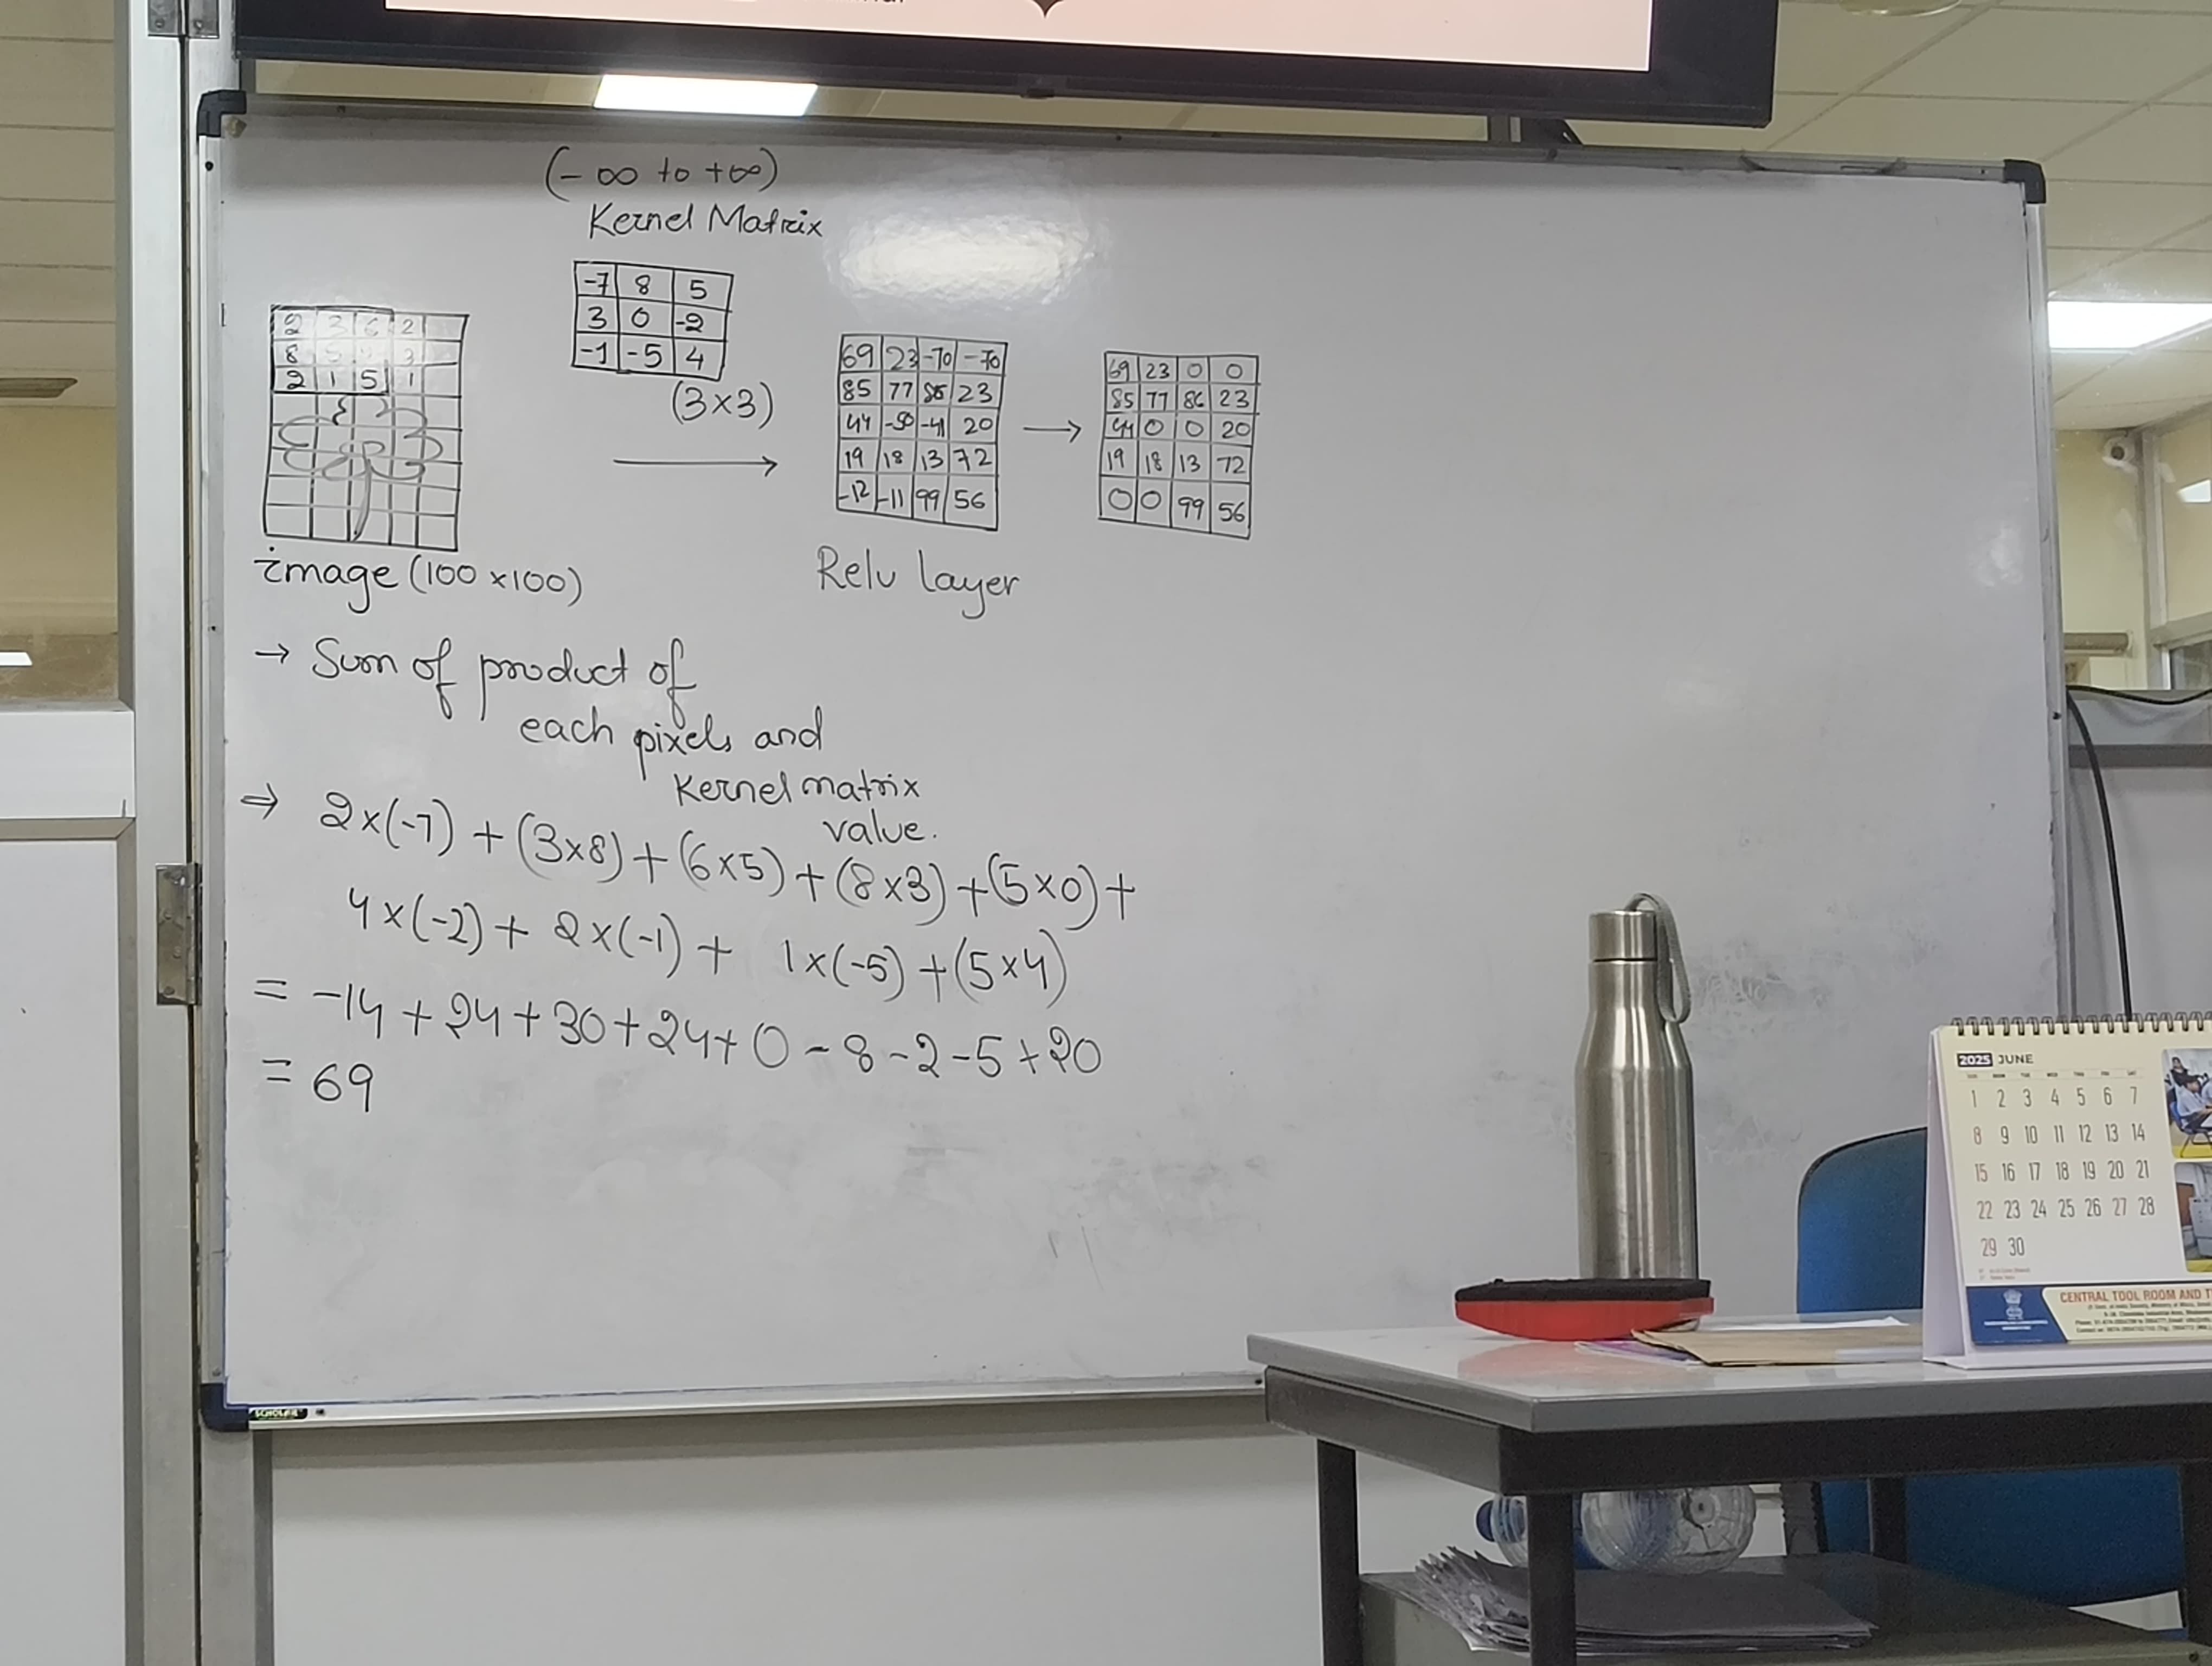 (- ∞ to +∞)
Kernel Matrix
-7 8 5
3 0 -2
-1 -5 4
(3×3)
2 3 6 2
8 5 3
2 1 5 1
image (100 ×100)
69 23 -70 -70
85 77 86 23
44 -50 -41 20
19 18 13 72
-12 -11 99 56
Relu layer
69 23 0 0
85 77 86 23
44 0 0 20
19 18 13 72
0 0 99 56
→ Sum of product of
each pixels and
Kernel matrix
value.
⇒ 2×(-7) + (3×8) + (6×5) + (8×3) + (5×0) +
4×(-2) + 2×(-1) + 1×(-5) + (5×4)
= -14 + 24 + 30 + 24 + 0 - 8 - 2 - 5 + 20
= 69
2025 JUNE
1 2 3 4 5 6 7
8 9 10 11 12 13 14
15 16 17 18 19 20 21
22 23 24 25 26 27 28
29 30
CENTRAL TOOL ROOM AND